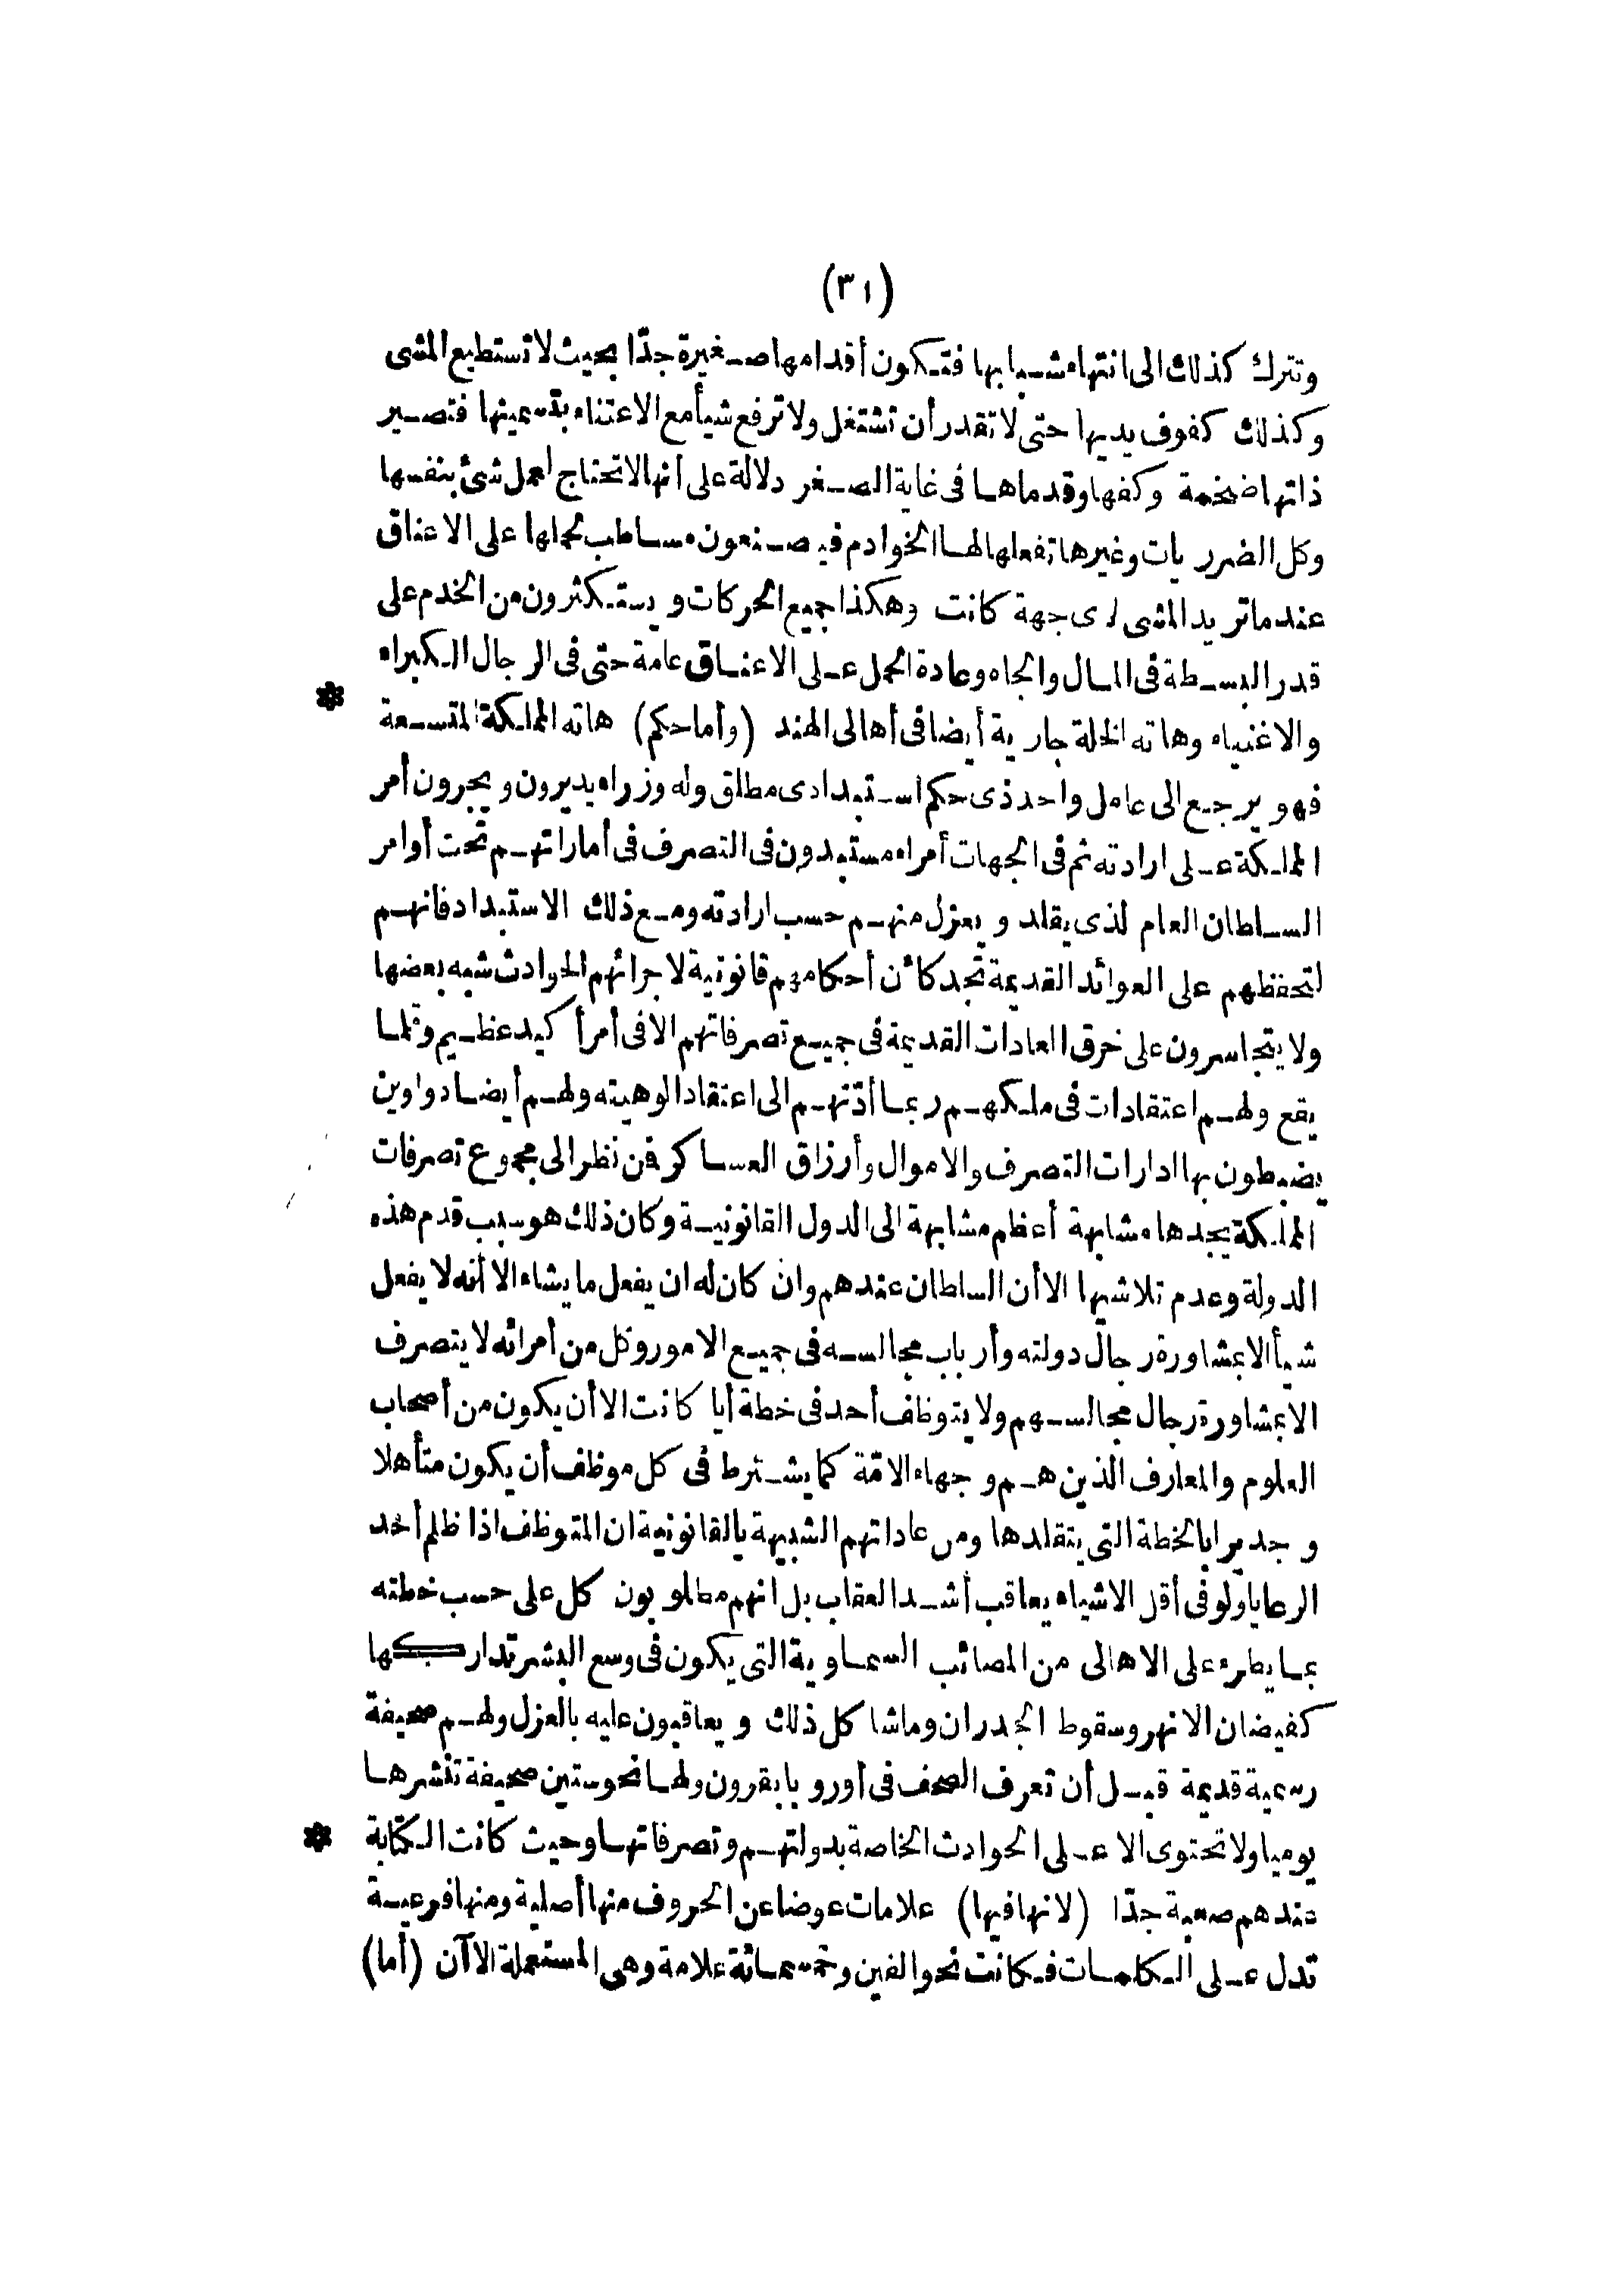 (٣١)
وتترك كذلك الى انتهاء شبابها فتكون أقدامها صغيرة جدّا بحيث لا تستطيع المشى
وكذلك كفوف يديها حتى لا تقدر أن تشتغل ولا ترفع شيأ مع الاعتناء بتسمينها فتصير
ذاتها ضخمة وكفها وقدماها فى غاية الصغر دلالة على أنها لا تحتاج لعمل شئ بنفسها
وكل الضرريات وغيرها تفعلها لها الخوادم فيصنعون مساطب لحملها على الاعناق
عندما تريد المشى لاى جهة كانت وهكذا جميع الحركات ويستكثرون من الخدم على
قدر البسطة فى المال والجاه وعادة الحمل على الاعناق عامة حتى فى الرجال الكبراء
والاغنياء وهاته الخلة جارية أيضا فى أهالى الهند (وأما حكم) هاته المملكة المتسعة *
فهو يرجع الى عامل واحد ذى حكم استبدادى مطلق وله وزراء يديرون ويجرون أمر
المملكة على ارادته ثم فى الجهات أمراء مستبدون فى التصرف فى أماراتهم تحت أوامر
السلطان العام لذى يقلد ويعزل منهم حسب ارادته ومع ذلك الاستبداد فانهم
لتحفظهم على العوائد القديمة تجد كأن أحكامهم قانونية لاجرائهم الحوادث شبه بعضها
ولا يتجاسرون على خرق العادات القديمة فى جميع تصرفاتهم الا فى أمر أكيد عظيم وقلما
يقع ولهم اعتقادات فى ملكهم ربما أدّتهم الى اعتقاد الوهيته ولهم أيضا دواوين
يضبطون بها ادارات التصرف والاموال وأرزاق العساكر فمن نظر الى مجموع تصرفات
المملكة يجدها مشابهة أعظم مشابهة الى الدول القانونية وكان ذلك هو سبب قدم هذه
الدولة وعدم تلاشيها الا أن السلطان عندهم وان كان له ان يفعل ما يشاء الا أنه لا يفعل
شيأ الا بمشاورة رجال دولته وأرباب مجالسه فى جميع الامور وكل من أمرائه لا يتصرف
الا بمشاورة رجال مجالسهم ولا يتوظف أحد فى خطة أيا كانت الا أن يكون من أصحاب
العلوم والمعارف الذين هم وجهاء الامّة كما يشترط فى كل موظف أن يكون متأهلا
وجديرا بالخطة التى يتقلدها ومن عاداتهم الشبيهة بالقانونية ان المتوظف اذا ظلم أحد
الرعايا ولو فى أقل الاشياء يعاقب أشد العقاب بل انهم مطلوبون كل على حسب خطته
بما يطرء على الاهالى من المصائب السماوية التى يكون فى وسع البشر تداركها
كفيضان الانهر وسقوط الجدران وماشا كل ذلك ويعاقبون عليه بالعزل ولهم صحيفة
رسمية قديمة قبل أن تعرف الصحف فى أوروبا بقرون ولها نحو ستين صحيفة تنشرها
يوميا ولا تحتوى الا على الحوادث الخاصة بدولتهم وتصرفاتها وحيث كانت الكتابة *
عندهم صعبة جدّا (لانها فيها) علامات عوضا عن الحروف منها أصلية ومنها فرعية
تدل على الكلمات فكانت نحو الفين وخمسمائة علامة وهى المستعملة الاآن (أما)